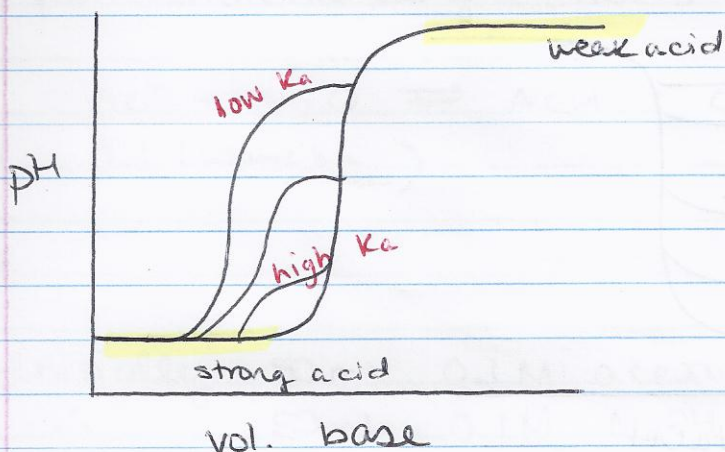 weak acid
low Ka
pH
high Ka
strong acid
vol. base